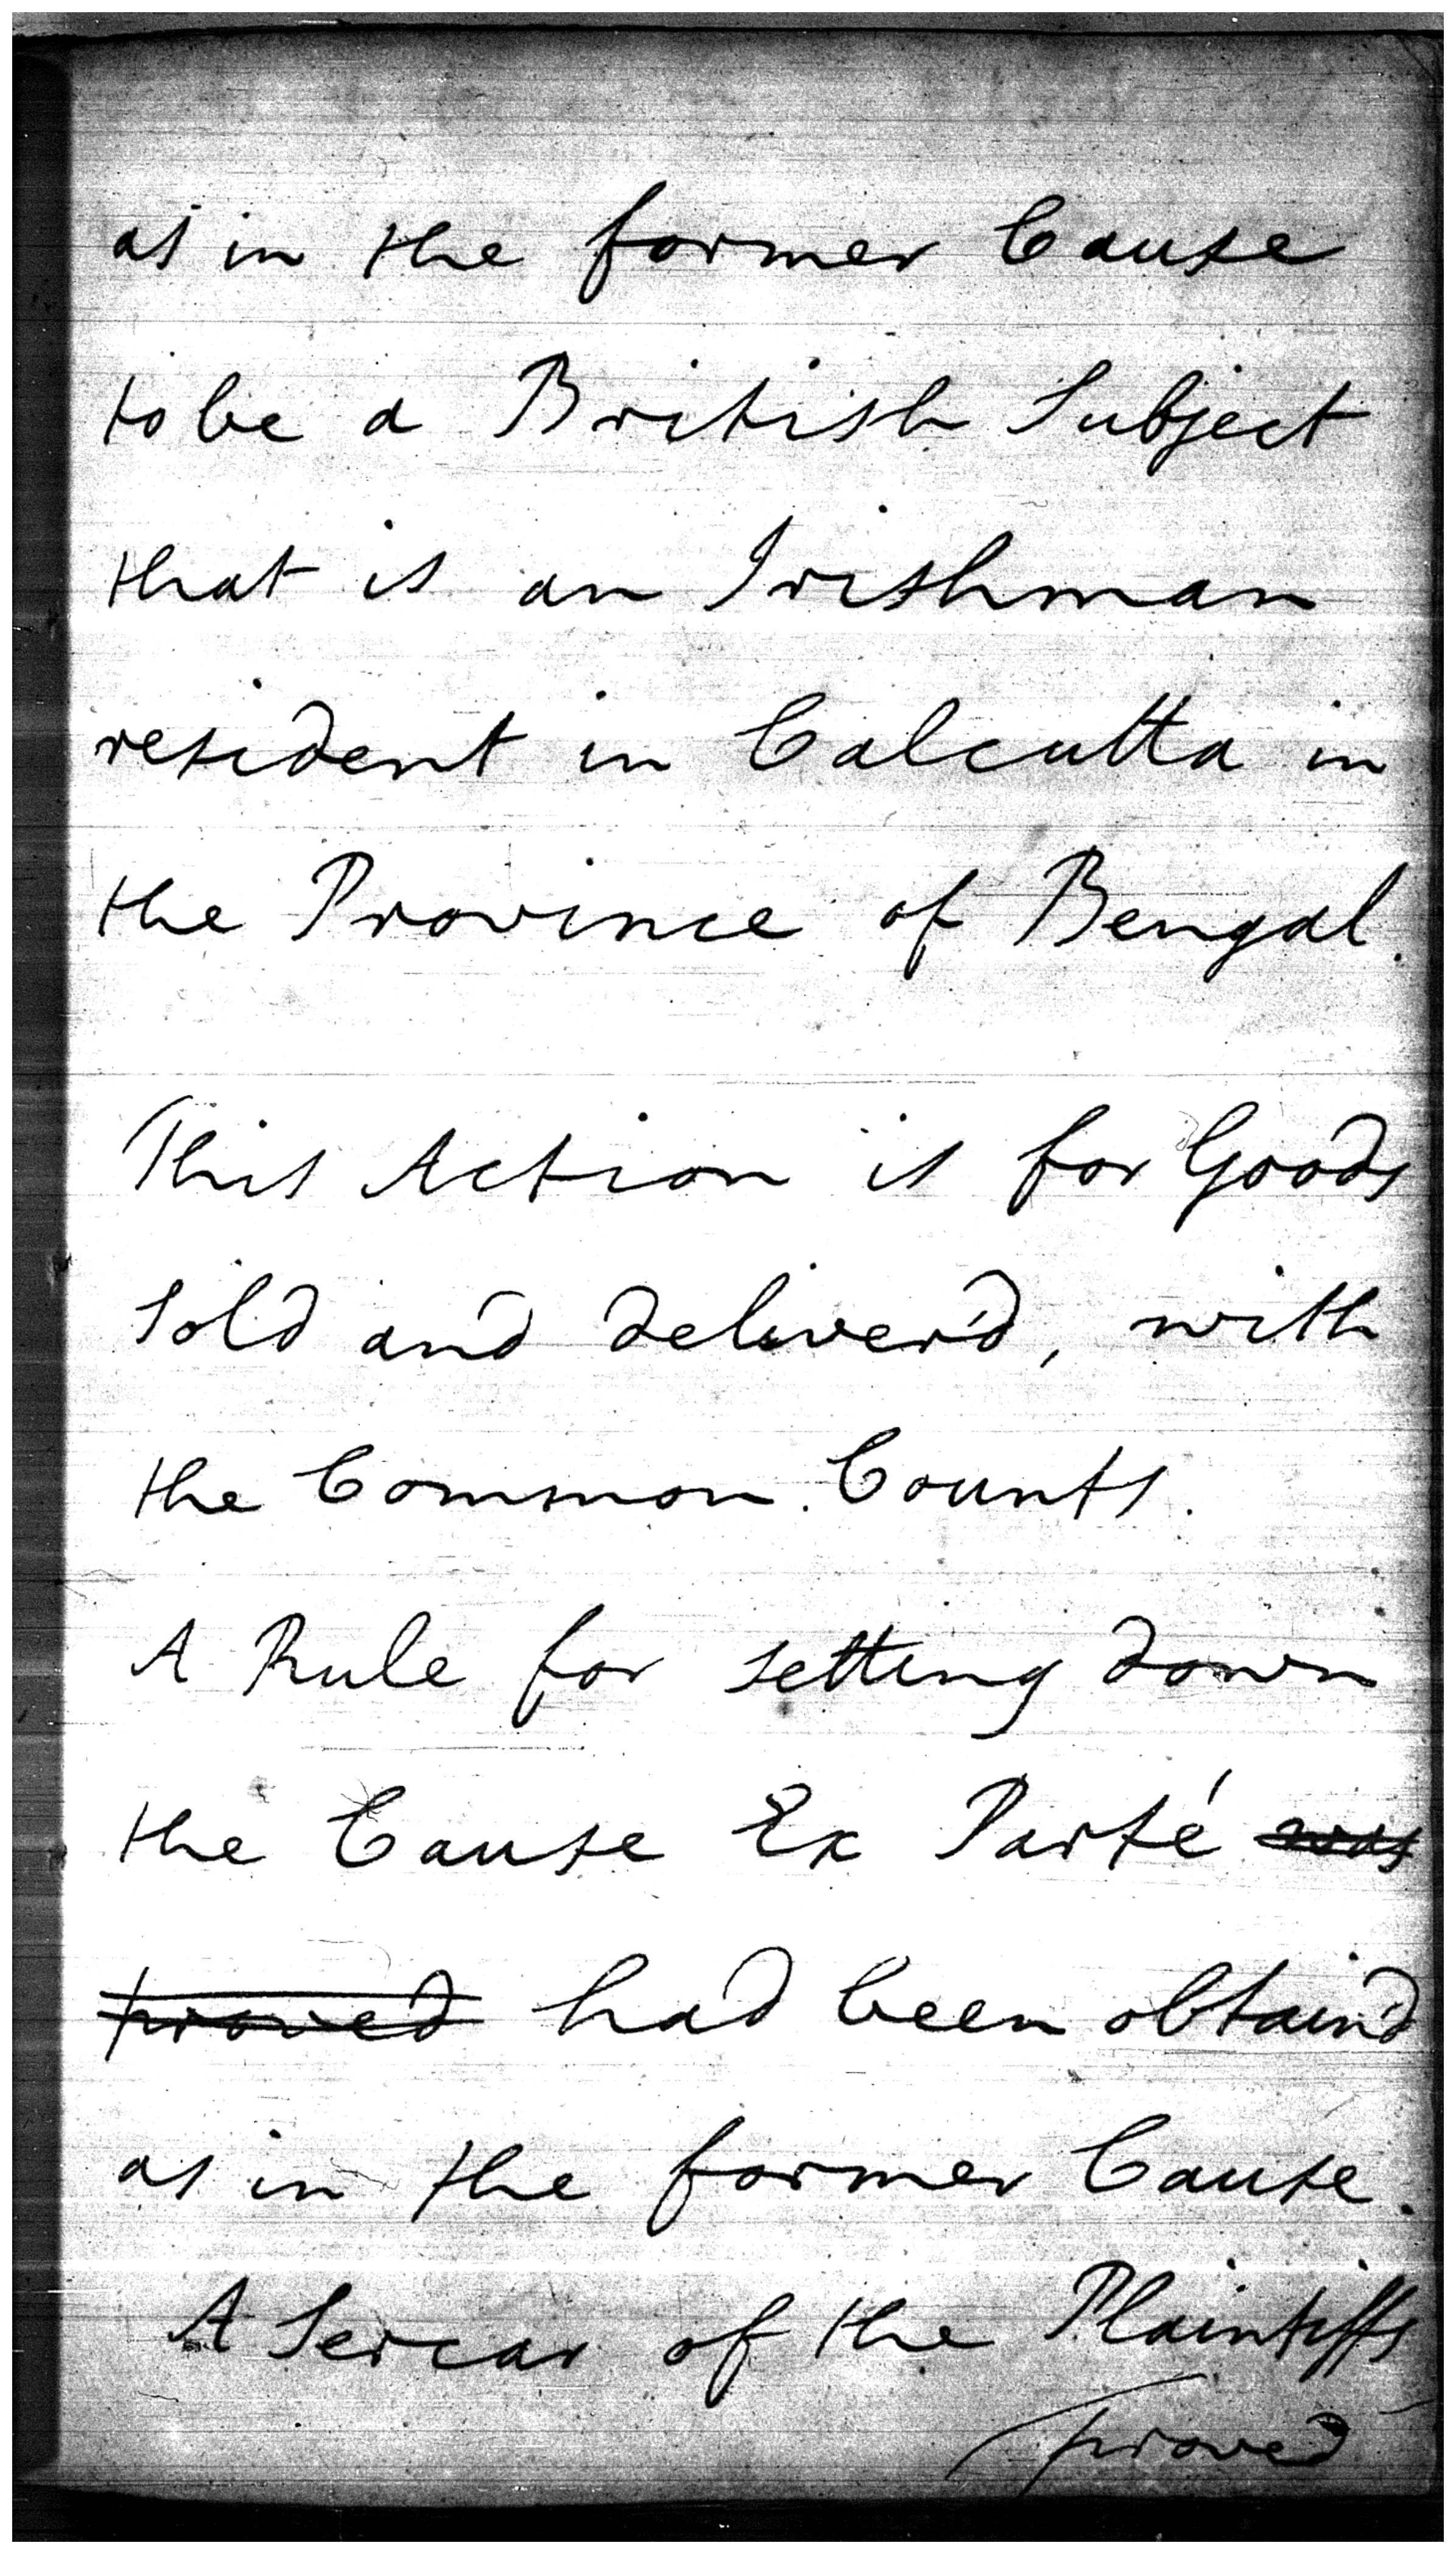 as in the former Cause
to be a British Subject
that is an Irishman
resident in Calcutta in
the Province of Bengal.
This Action is for Goods
Sold and deliver'd, with
the Common Counts.
A Rule for setting down
the Cause Ex Parté was
proved had been obtain'd
as in the former Cause.
A Sercar of the Plaintiffs
proved